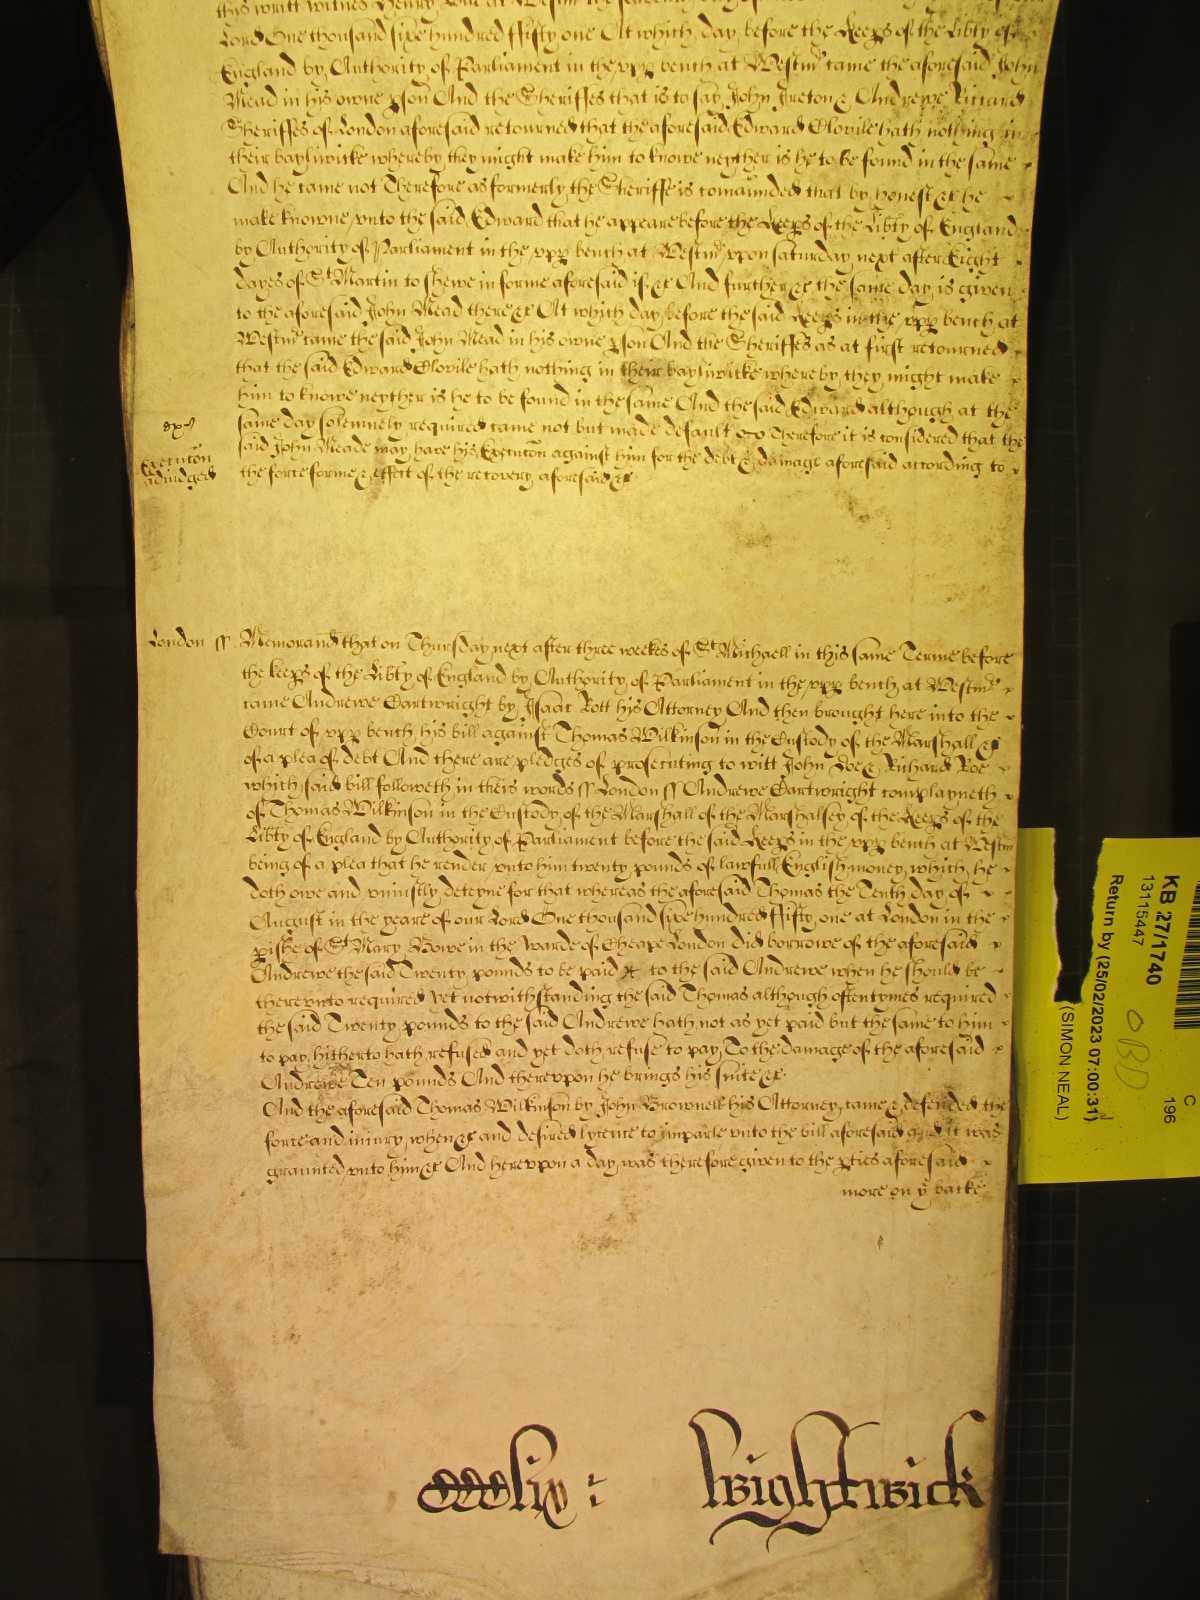 this writt witnes Henry Rolle at Westm the
Lord One thousand sixe hundred ffifty one At which day before the Keeps of the Libty of
England by Authority of Parliament in the vpp bench at Westmr came the aforesaid John
Mead in his owne pson And the Sheriffes that is to say John Ireton & Andrewe Riccard
Sheriffes of London aforesaid retourned that the aforesaid Edward Clovile hath nothing in
their bayliwicke whereby they might make him to knowe neyther is he to be found in the same
And he came not Therefore as formerly the Sheriffe is comaunded that by honest &c he
make knowne vnto the said Edward that he appeare before the Keeps of the Libty of England
by Authority of Parliament in the vpp bench at Westmr vpon saturday next after Eight
dayes of St Martin to shewe in forme aforesaid if &c And further &c the same day is given
to the aforesaid John Mead there &c At which day before the said Keeps in the vpp bench at
Westmr came the said John Mead in his owne pson And the Sheriffes as at first retourned
that the said Edward Clovile hath nothing in their bayliwicke whereby they might make
him to knowe neyther is he to be found in the same And the said Edward although at the
same day solemnely required came not but made default Therefore it is considered that the
said John Meade may have his Execucon against him for the debt & damage aforesaid according to
the force forme & effect of the recovery aforesaid &c
Execucon
adiudged
London ss Memorand that on Thursday next after three weekes of St Michaell in this same Terme before
the keeps of the Libty of England by Authority of Parliament in the vpp bench at Westmr
came Andrewe Cartwright by Isaac Rott his Attorney And then brought here into the
Court of vpp bench his bill against Thomas Wilkinson in the Custody of the Marshall &c
of a plea of debt And there are pledges of prosecuting to witt John Doe & Richard Roe
which said bill followeth in theis words ss London ss Andrewe Cartwright complayneth
of Thomas Wilkinson in the Custody of the Marshall of the Marshalsey of the Keeps of the
Libty of England by Authority of Parliament before the said Keeps in the vpp bench at Westm
being of a plea that he render vnto him twenty pounds of lawfull English money which he
doth owe and vniustly deteyne for that whereas the aforesaid Thomas the Tenth day of
August in the yeare of our Lord One thousand sixe hundred ffifty one at London in the
pishe of St Mary Bowe in the Warde of Cheape London did borrowe of the aforesaid
Andrewe the said Twenty pounds to be paid to the said Andrewe when he should be
therevnto required yet notwithstanding the said Thomas although oftentymes required
the said Twenty pounds to the said Andrewe hath not as yet paid but the same to him
to pay hitherto hath refused and yet doth refuse to pay To the damage of the aforesaid
Andrewe Ten pounds And therevpon he brings his suite &c
And the aforesaid Thomas Wilkinson by John Brownell his Attorney came & defended the
force and iniury when &c and desired lycence to imparle vnto the bill aforesaid and it was
graunted vnto him &c And herevpon a day was therefore given to the pties aforesaid
more on ye backe
ccclix
Wightwick
C
196
KB 27/1740
13115447
Return by (25/02/2023 07:00:31)
(SIMON NEAL)